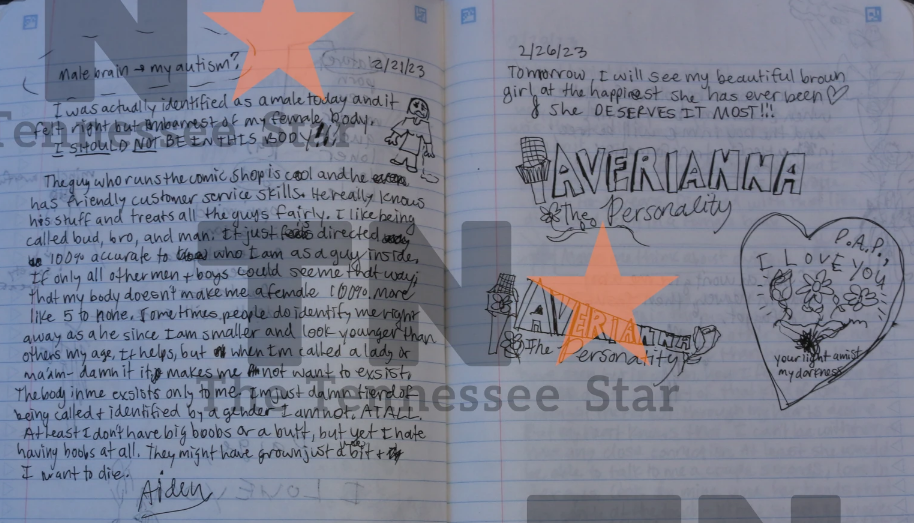 Male brain → my autism?
2/21/23
I was actually identified as a male today and it
felt right but embarrest of my female body.
I SHOULD NOT BE IN THIS BODY!!!
The guy who runs the comic shop is cool and he
has friendly customer service skills. He really knows
his stuff and treats all the guys fairly. I like being
called bud, bro, and man. It just directed
100% accurate to who I am as a guy inside.
If only all other men + boys would see me that way,
that my body doesn't make me a female 100%. More
like 5 to none. Sometimes people do identify me right
away as a he since I am smaller and look younger than
others my age. It helps, but when I'm called a lady or
ma'am - damn it it makes me not want to exsist.
The body in me exsists only to me. I'm just damn tierd of
being called + identified by a gender I am not. AT ALL.
At least I don't have big boobs or a butt, but yet I hate
having boobs at all. They might have grown just a bit +
I want to die.
Aiden
2/26/23
Tomorrow, I will see my beautiful brown
girl at the happiest she has ever been
& she DESERVES IT MOST!!!
AVERIANNA
the Personality
AVERIANNA
The Personality
P.A.P.,
I LOVE YOU
your light amist
my darkness
TN
The Tennessee Star
TN
The Tennessee Star
TN